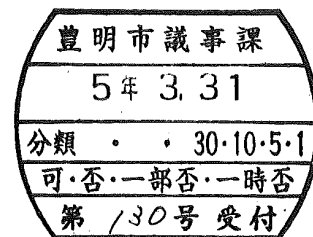 豊明市議事課
5年 3. 31
分類 ・ ・ 30・10・5・1
可・否・一部否・一時否
第 130号 受付